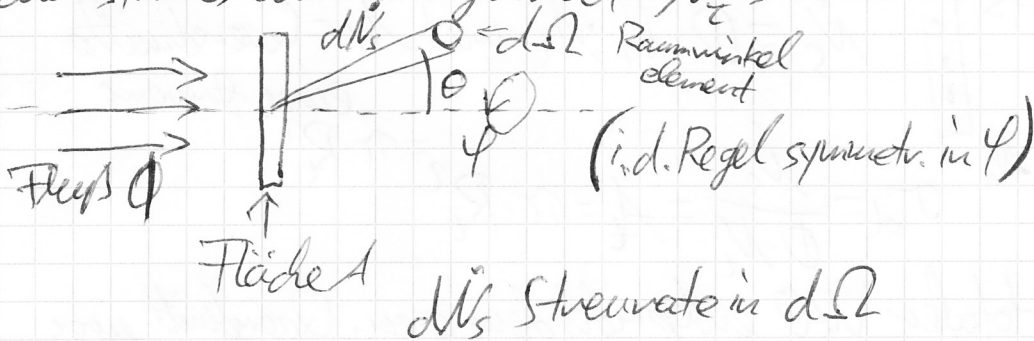 dṄₛ = dΩ Raumwinkel
element
θ
φ
(i.d. Regel symmetr. in φ)
Fluß ϕ
Fläche A
dṄₛ Streurate in dΩ